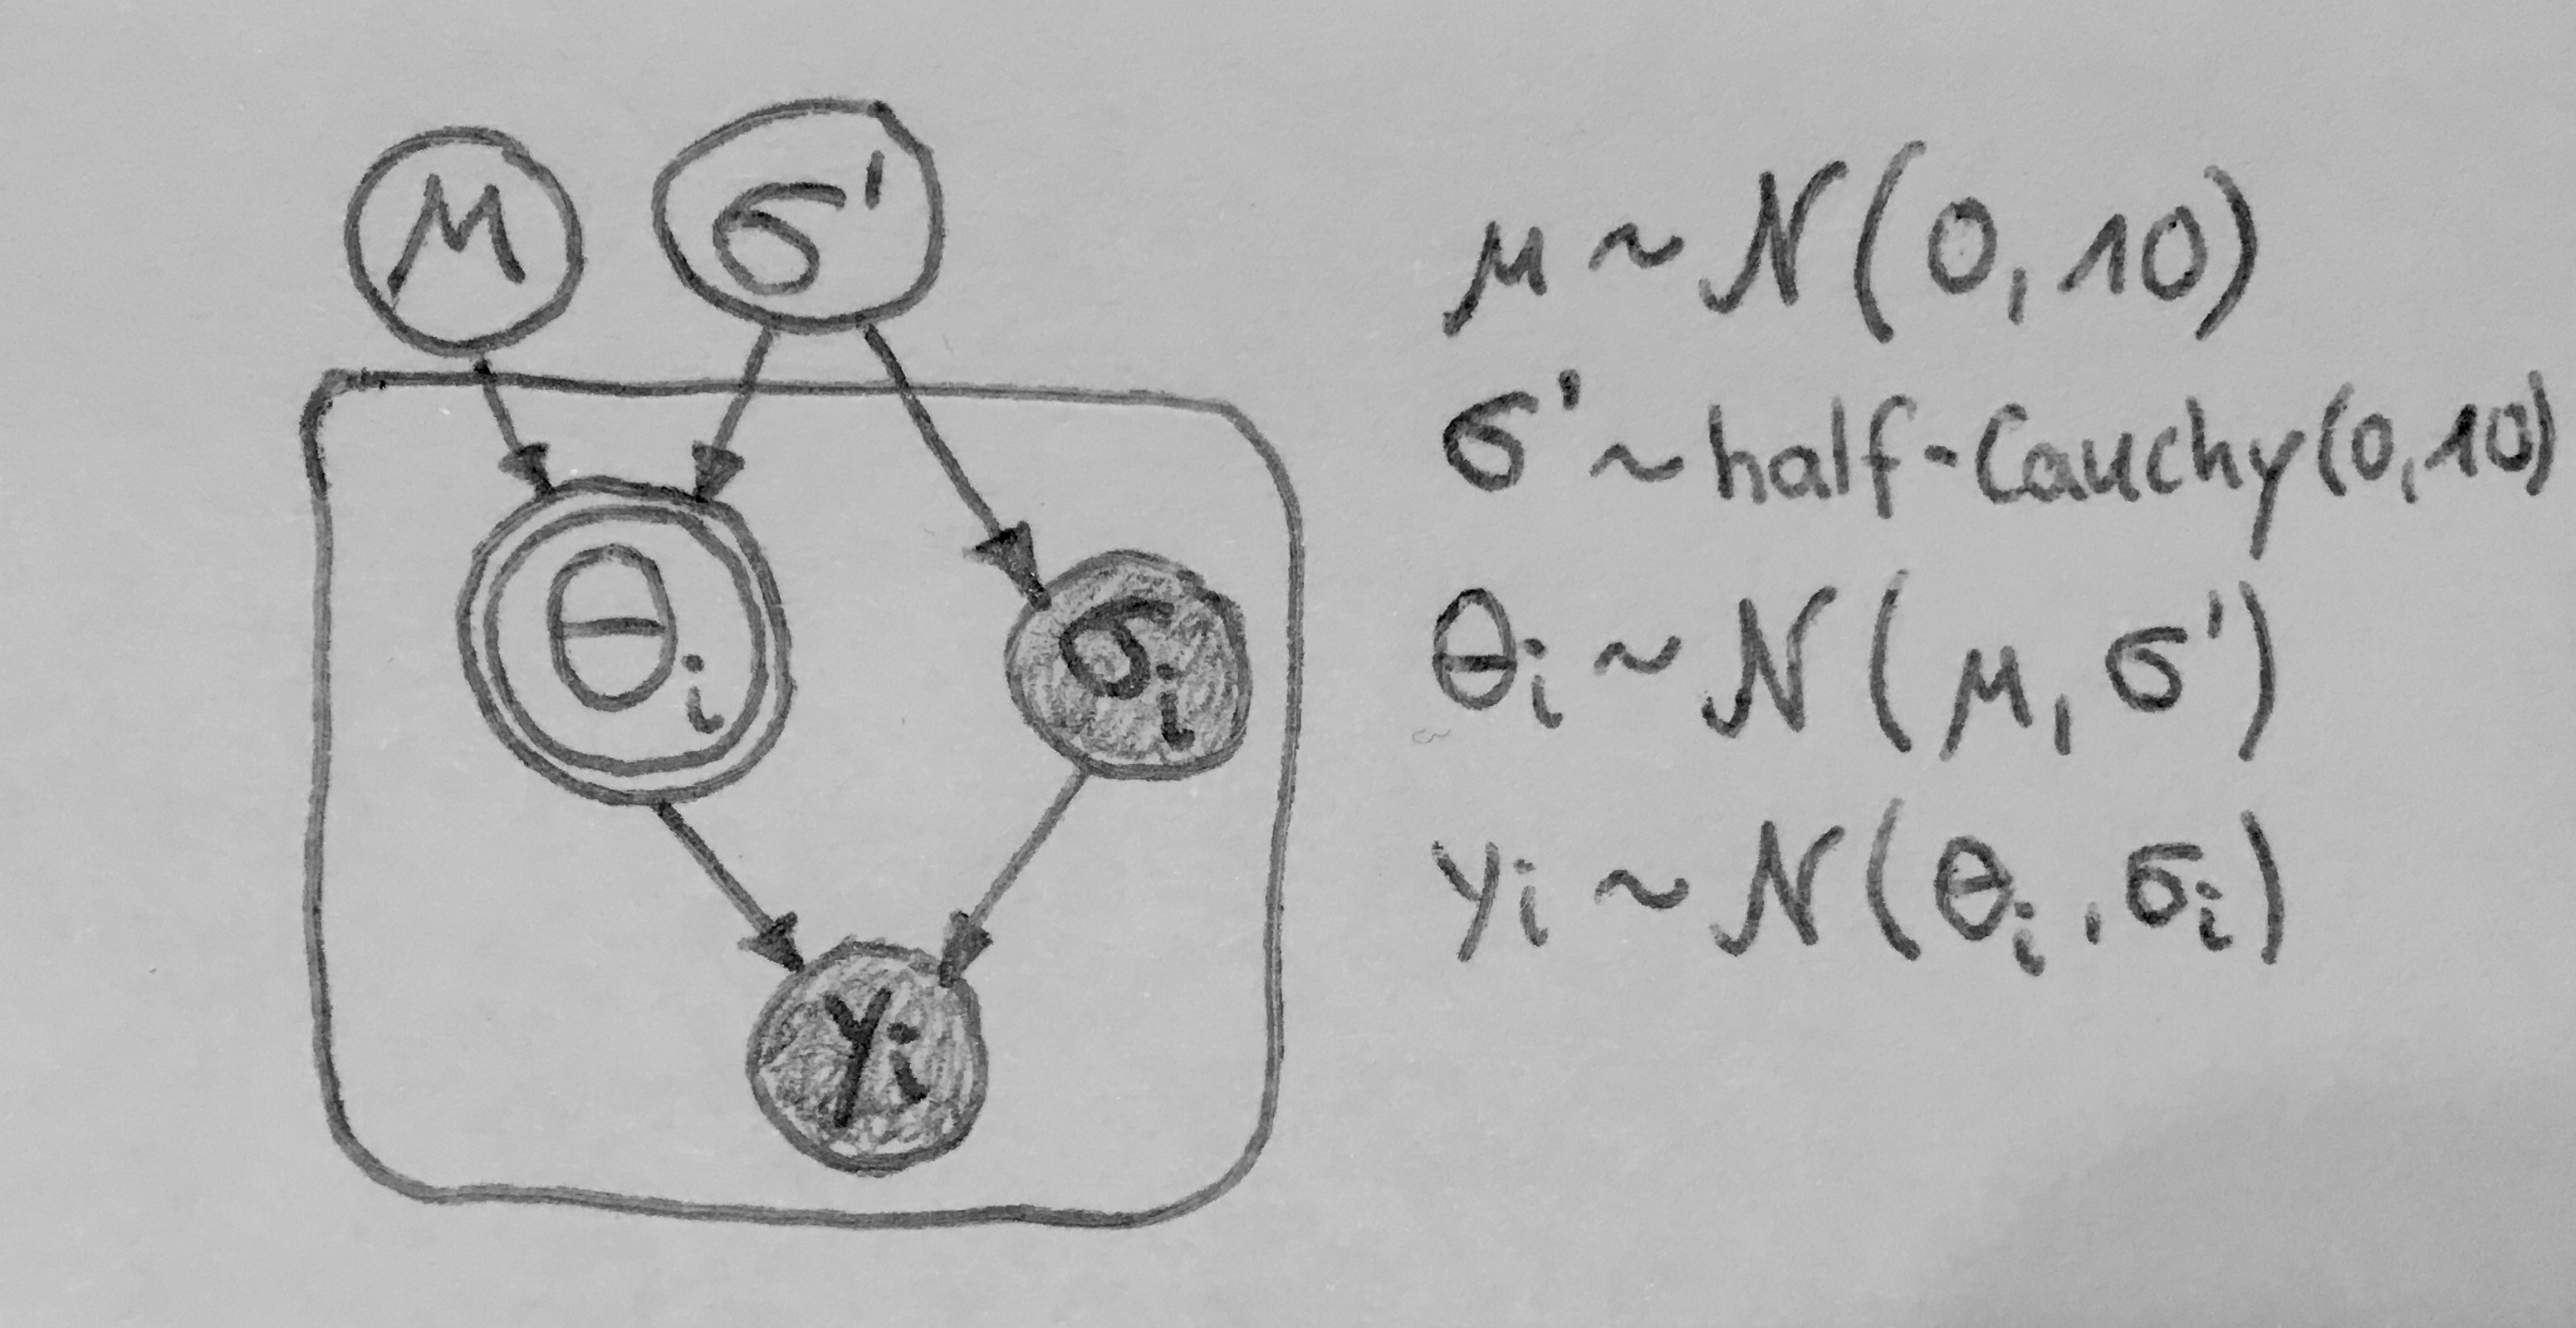 μ
σ'
θi
σi
yi
μ ~ N(0, 10)
σ' ~ half-Cauchy(0, 10)
θi ~ N(μ, σ')
yi ~ N(θi, σi)